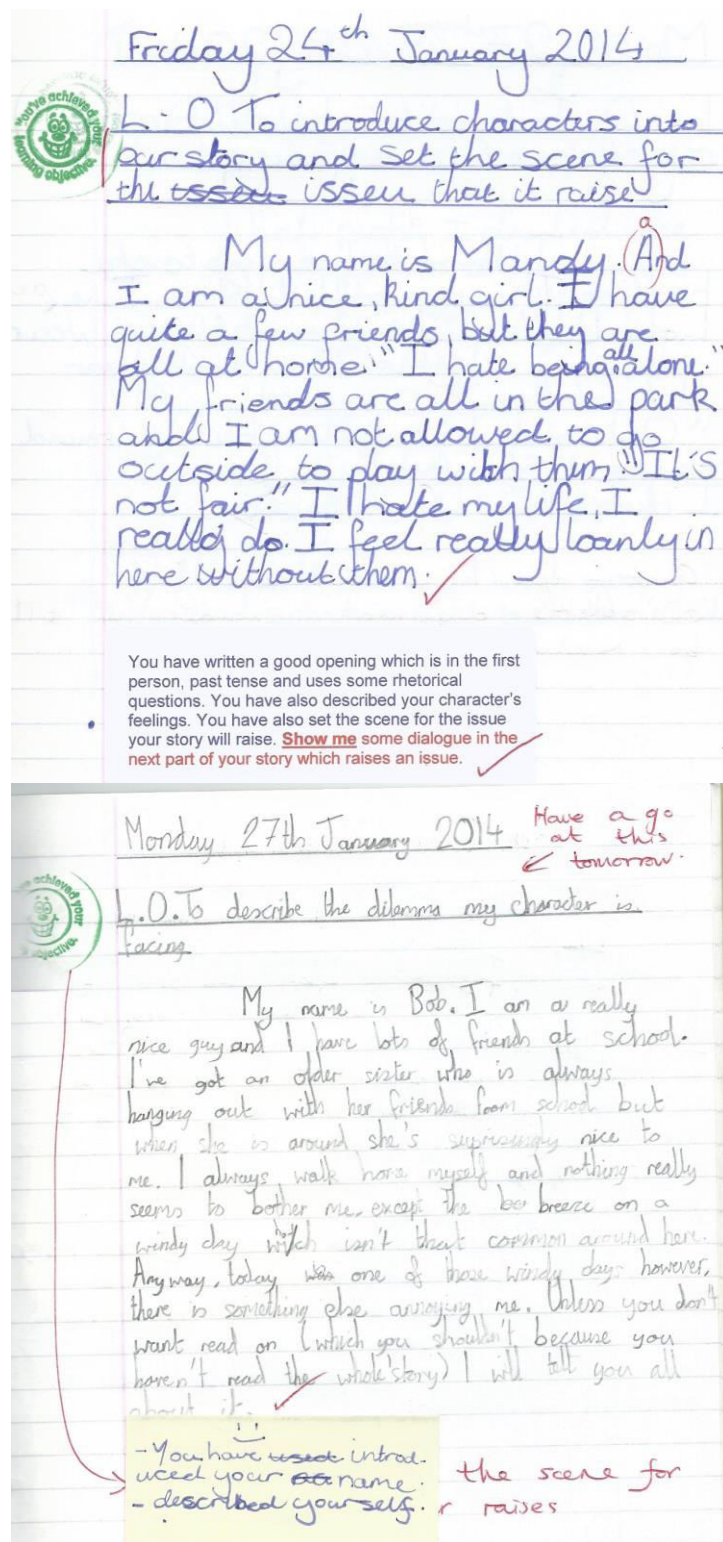 Friday 24th January 2014
You've achieved your learning objective.
L.O To introduce characters into
our story and set the scene for
the isseu that it raise
a
My name is Mandy. And
I am a nice, kind girl. I have
quite a few friends, but they are
all at home. "I hate being all alone."
My friends are all in the park
and I am not allowed to go
outside to play with them. "It's
not fair." I hate my life, I
really do. I feel really loanly in
here without them.
You have written a good opening which is in the first
person, past tense and uses some rhetorical
questions. You have also described your character's
feelings. You have also set the scene for the issue
your story will raise. Show me some dialogue in the
next part of your story which raises an issue.
Monday 27th January 2014
Have a go
at this
tomorrow.
achieved your
objective.
L.O. To describe the dilemma my character is
facing
My name is Bob. I am a really
nice guy and I have lots of friends at school.
I've got an older sister who is always
hanging out with her friends from school but
when she is around she's suprisingly nice to
me. I always walk home myself and nothing really
seems to bother me, except the breeze on a
windy day which isn't that common around here.
Anyway, today was one of those windy days however,
there is something else annoying me. Unless you don't
want read on (which you shouldn't because you
haven't read the whole story) I will tell you all
about it.
- You have introd-
uced your name.
- described yourself.
the scene for
r raises